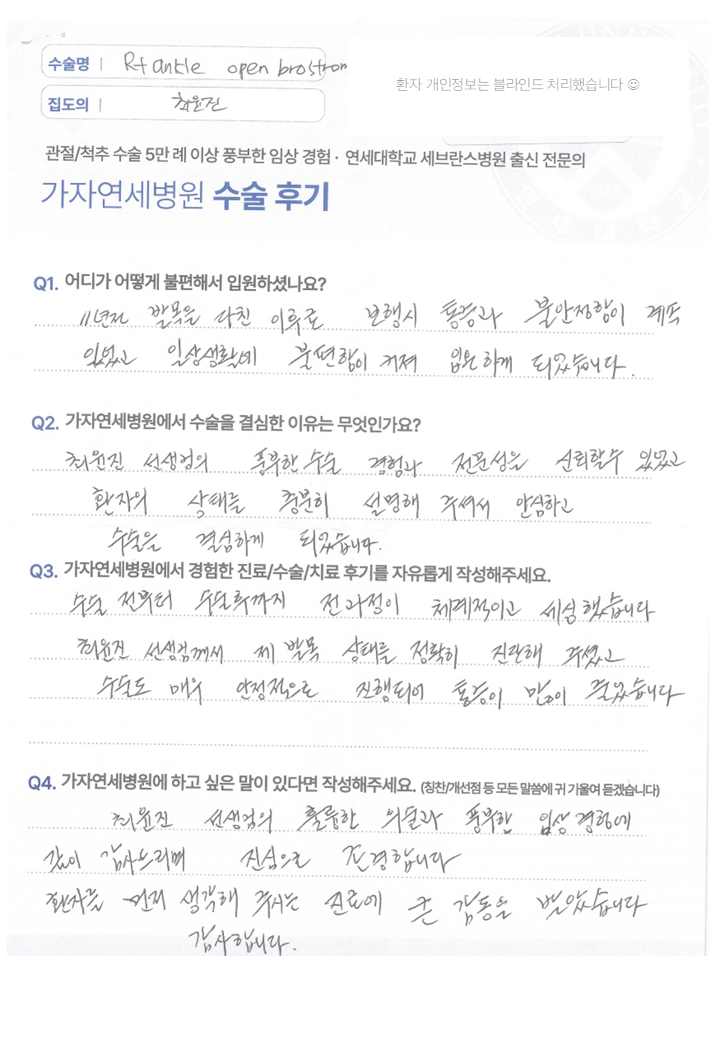 수술명 | Rt ankle open brostrom
환자 개인정보는 블라인드 처리했습니다 ☺
집도의 | 최윤진
관절/척추 수술 5만 례 이상 풍부한 임상 경험 · 연세대학교 세브란스병원 출신 전문의
가자연세병원 수술 후기
Q1. 어디가 어떻게 불편해서 입원하셨나요?
11년전 발목을 다친 이후로 보행시 통증과 불안정함이 계속
있었고 일상생활에 불편함이 커져 입원하게 되었습니다.
Q2. 가자연세병원에서 수술을 결심한 이유는 무엇인가요?
최윤진 선생님의 풍부한 수술 경험과 전문성을 신뢰할수 있었고
환자의 상태를 충분히 설명해 주셔서 안심하고
수술을 결심하게 되었습니다.
Q3. 가자연세병원에서 경험한 진료/수술/치료 후기를 자유롭게 작성해주세요.
수술 전부터 수술후까지 전과정이 체계적이고 세심했습니다
최윤진 선생님께서 제 발목 상태를 정확히 진단해 주셨고
수술도 매우 안정적으로 진행되어 통증이 많이 줄었습니다
Q4. 가자연세병원에 하고 싶은 말이 있다면 작성해주세요. (칭찬/개선점 등 모든 말씀에 귀 기울여 듣겠습니다)
최윤진 선생님의 훌륭한 의술과 풍부한 임상경험에
깊이 감사드리며 진심으로 존경합니다
환자를 먼저 생각해 주시는 진료에 큰 감동을 받았습니다
감사합니다.